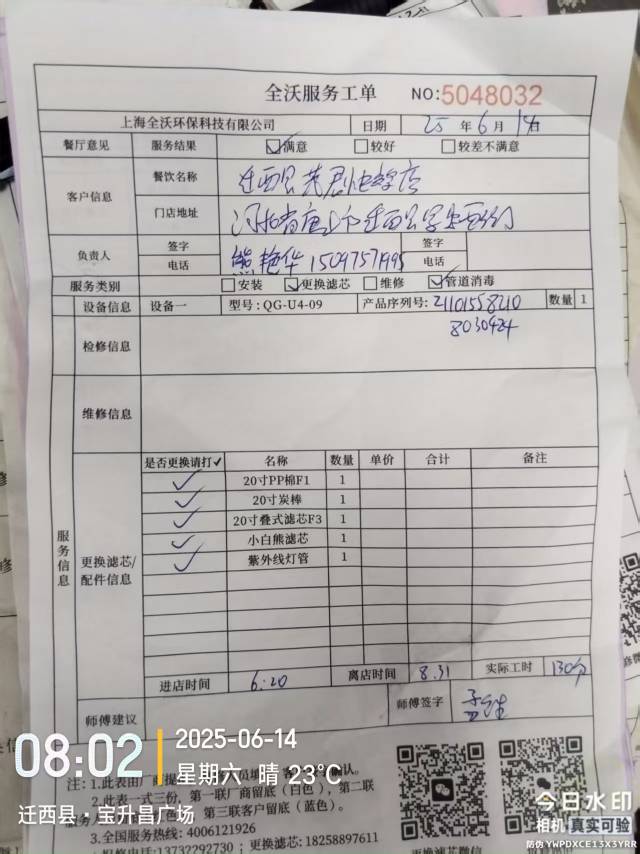 全沃服务工单 NO:5048032
上海全沃环保科技有限公司 日期 25 年 6 月 14日
餐厅意见 服务结果 ✓满意 较好 较差不满意
客户信息 餐饮名称 迁西县
门店地址 河北省唐山市迁西县
负责人 签字 熊艳华 签字
电话 15097571995 电话
服务类别 安装 ✓更换滤芯 维修 ✓管道消毒
设备信息 设备一 型号:QG-U4-09 产品序列号: 21101558210 数量 1
8030424
检修信息
维修信息
服务信息
是否更换请打✓ 名称 数量 单价 合计 备注
✓ 20寸PP棉F1 1
✓ 20寸炭棒 1
✓ 20寸叠式滤芯F3 1
✓ 小白熊滤芯 1
✓ 紫外线灯管 1
更换滤芯/
配件信息
进店时间 6:20 离店时间 8.31 实际工时 130分
师傅建议 师傅签字
08:02 2025-06-14
星期六·晴 23℃
迁西县·宝升昌广场
注:1.此表由
2.此表一式三份,第一联厂商留底(白色),第二联
服务 第三联客户留底(蓝色)。
3.全国服务热线:4006121926
13732292730;更换滤芯:18258897611
今日水印
相机 真实可验
防伪 YWPDXCE13X3YRR